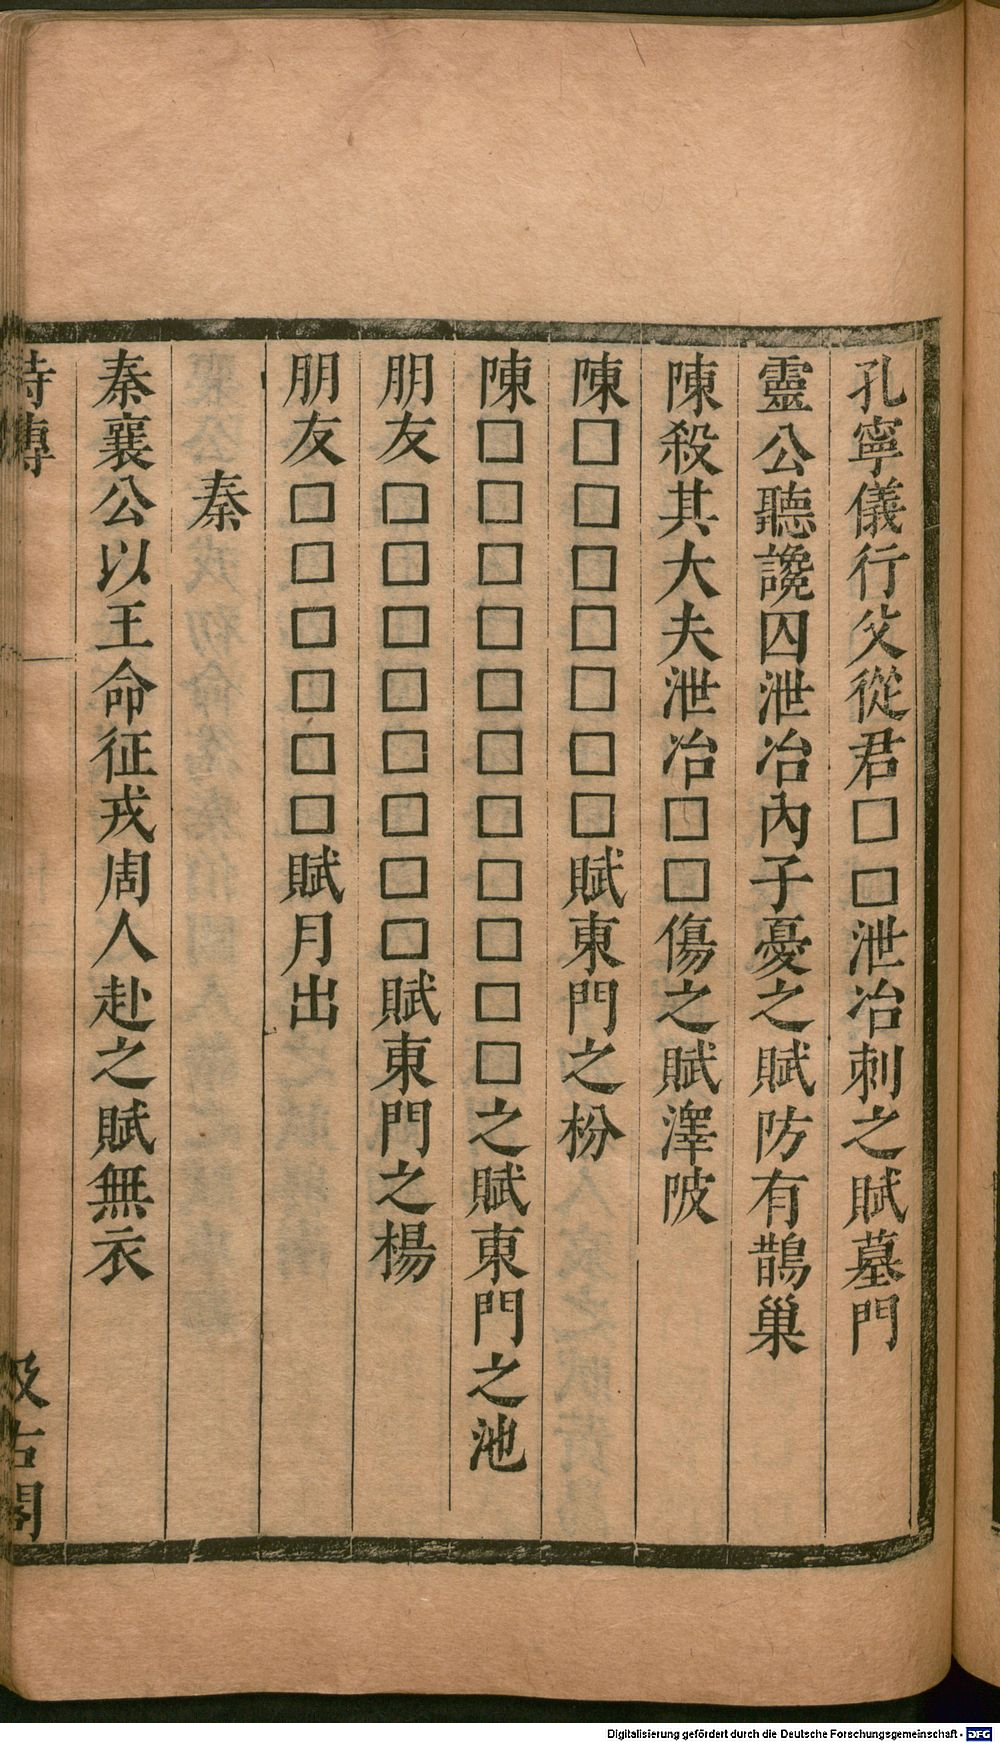 孔寧儀行父從君□□泄冶刺之賦墓門
靈公聽讒囚泄冶內子憂之賦防有鵲巢
陳殺其大夫泄冶□□傷之賦澤陂
陳□□□□□□□賦東門之枌
陳□□□□□□□□□□□之賦東門之池
朋友□□□□□□□□賦東門之楊
朋友□□□□□□賦月出
秦
秦襄公以王命征戎周人赴之賦無衣
詩傳
汲古閣
Digitalisierung gefördert durch die Deutsche Forschungsgemeinschaft - DFG